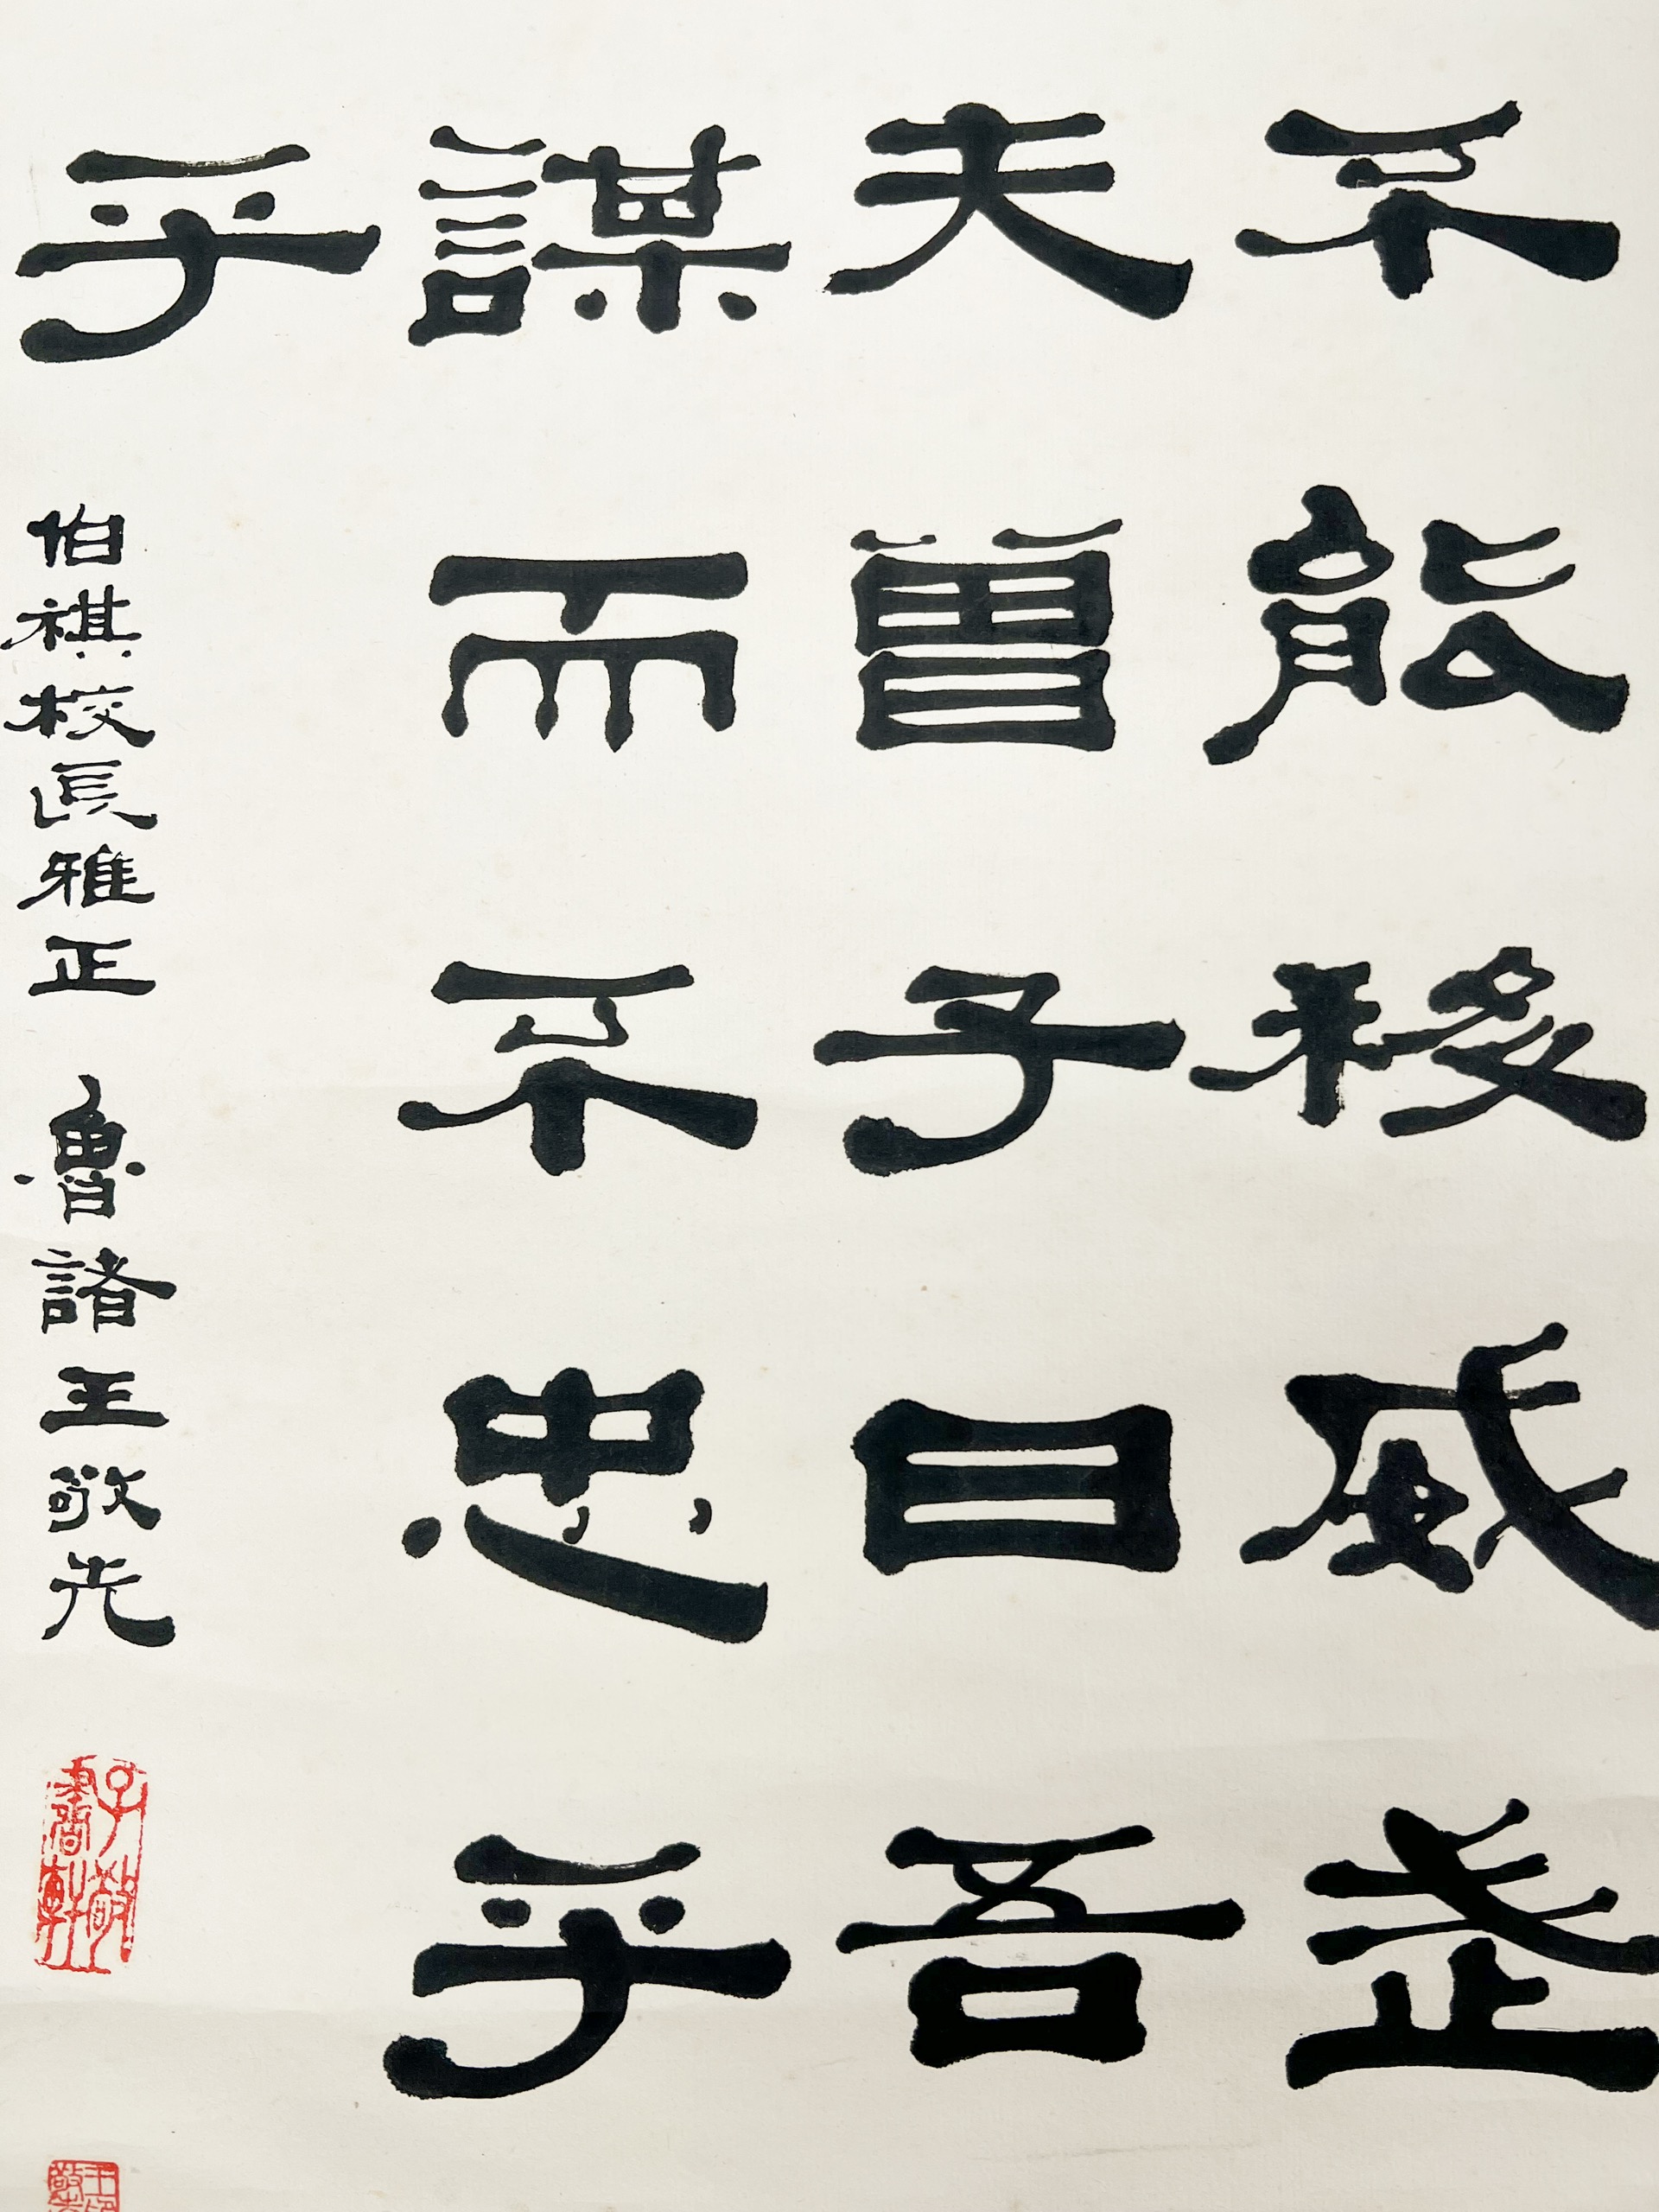 不能移威武
夫曾子曰吾
謀而不忠乎
乎
伯祺校長雅正 魯諸王敬先
子敬書軒